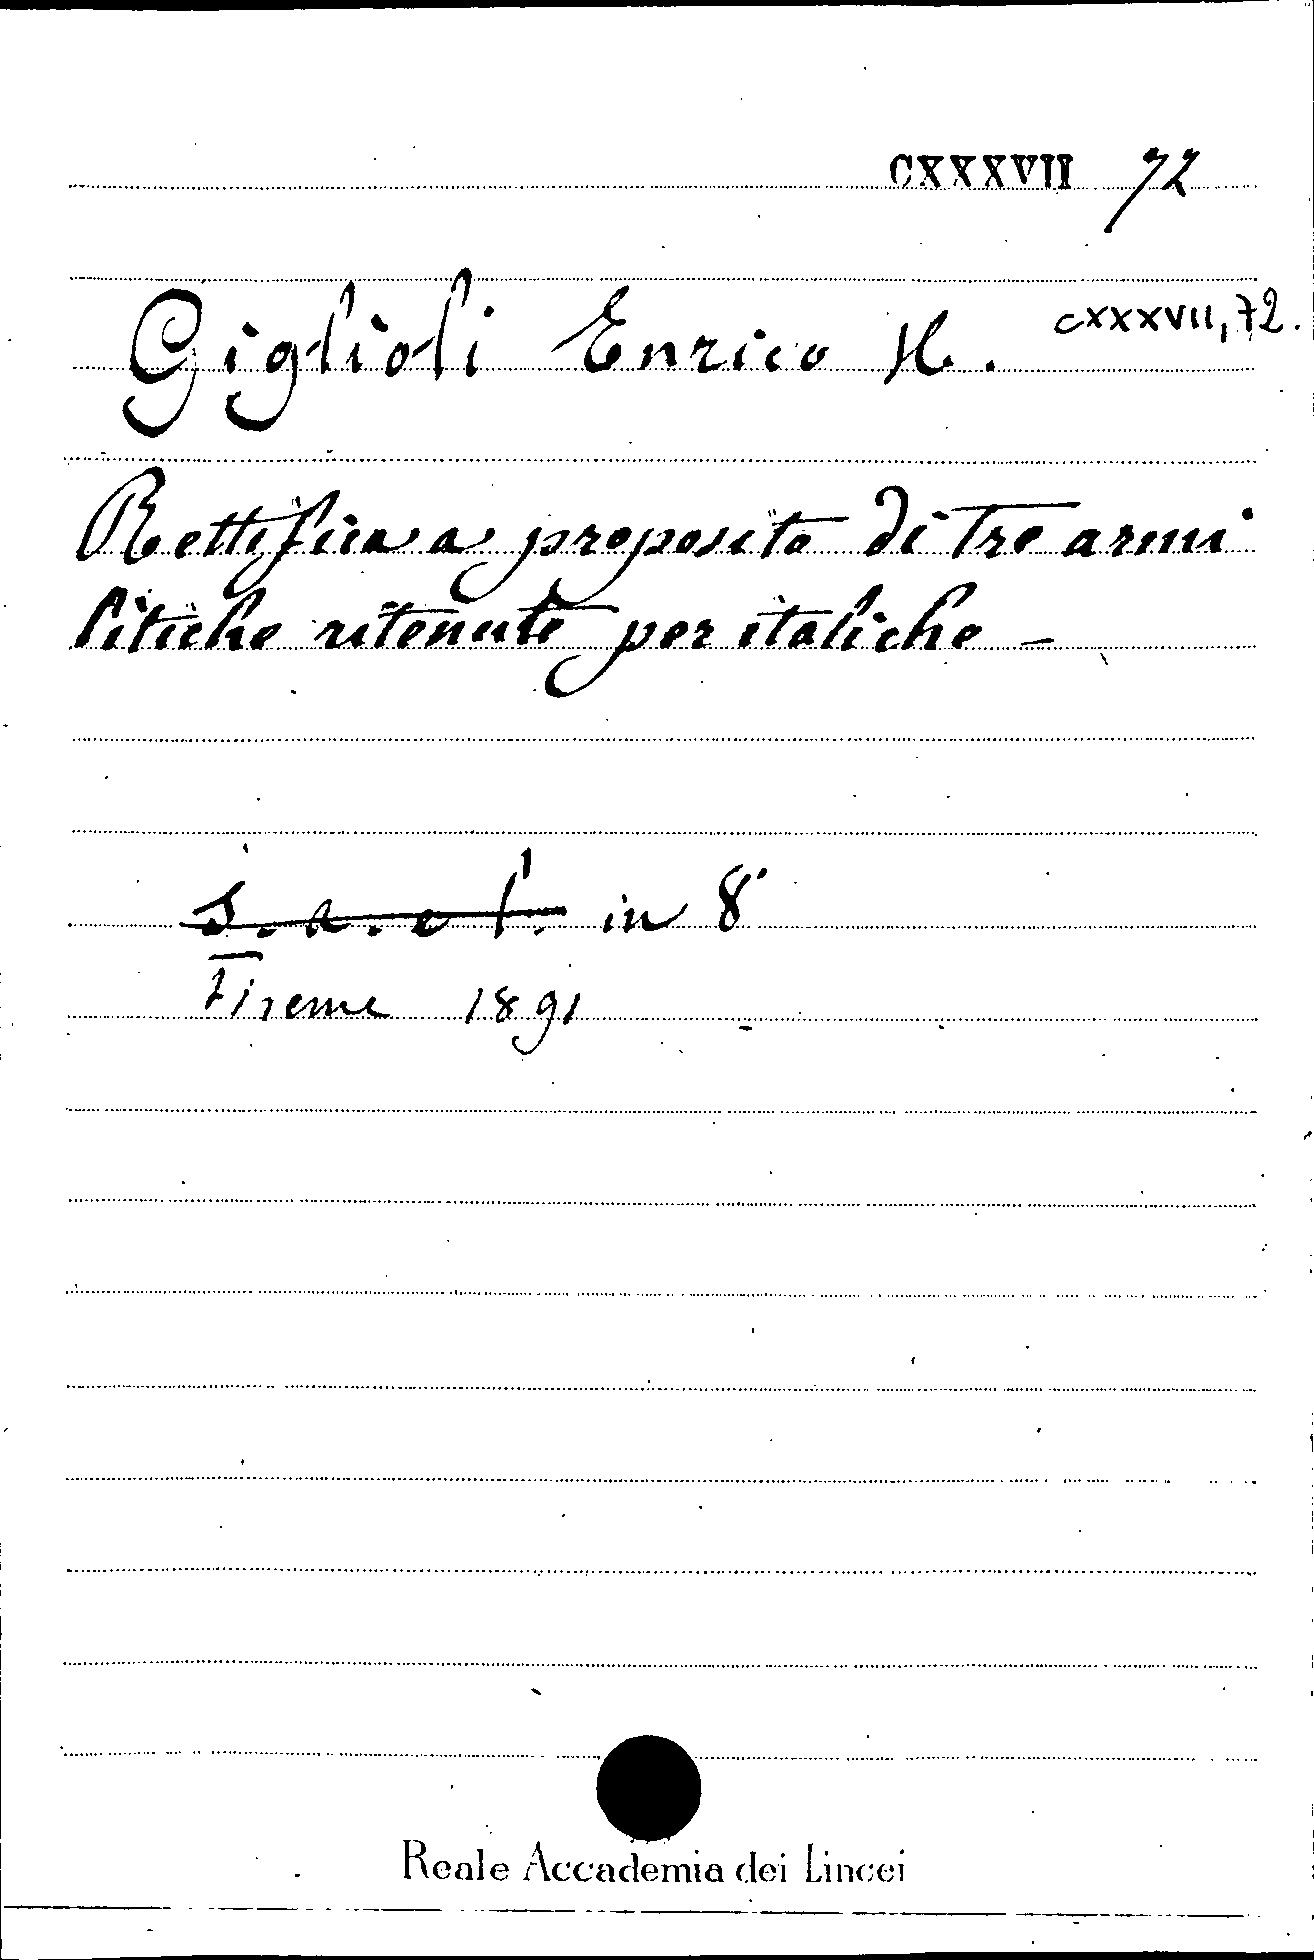 CXXXVII 72
Giglioli Enrico H. CXXXVII, 72.
Rettifica a proposito di tre armi
litiche ritenute per italiche -
S. a. e l. in 8°
Firenze 1891
Reale Accademia dei Lincei